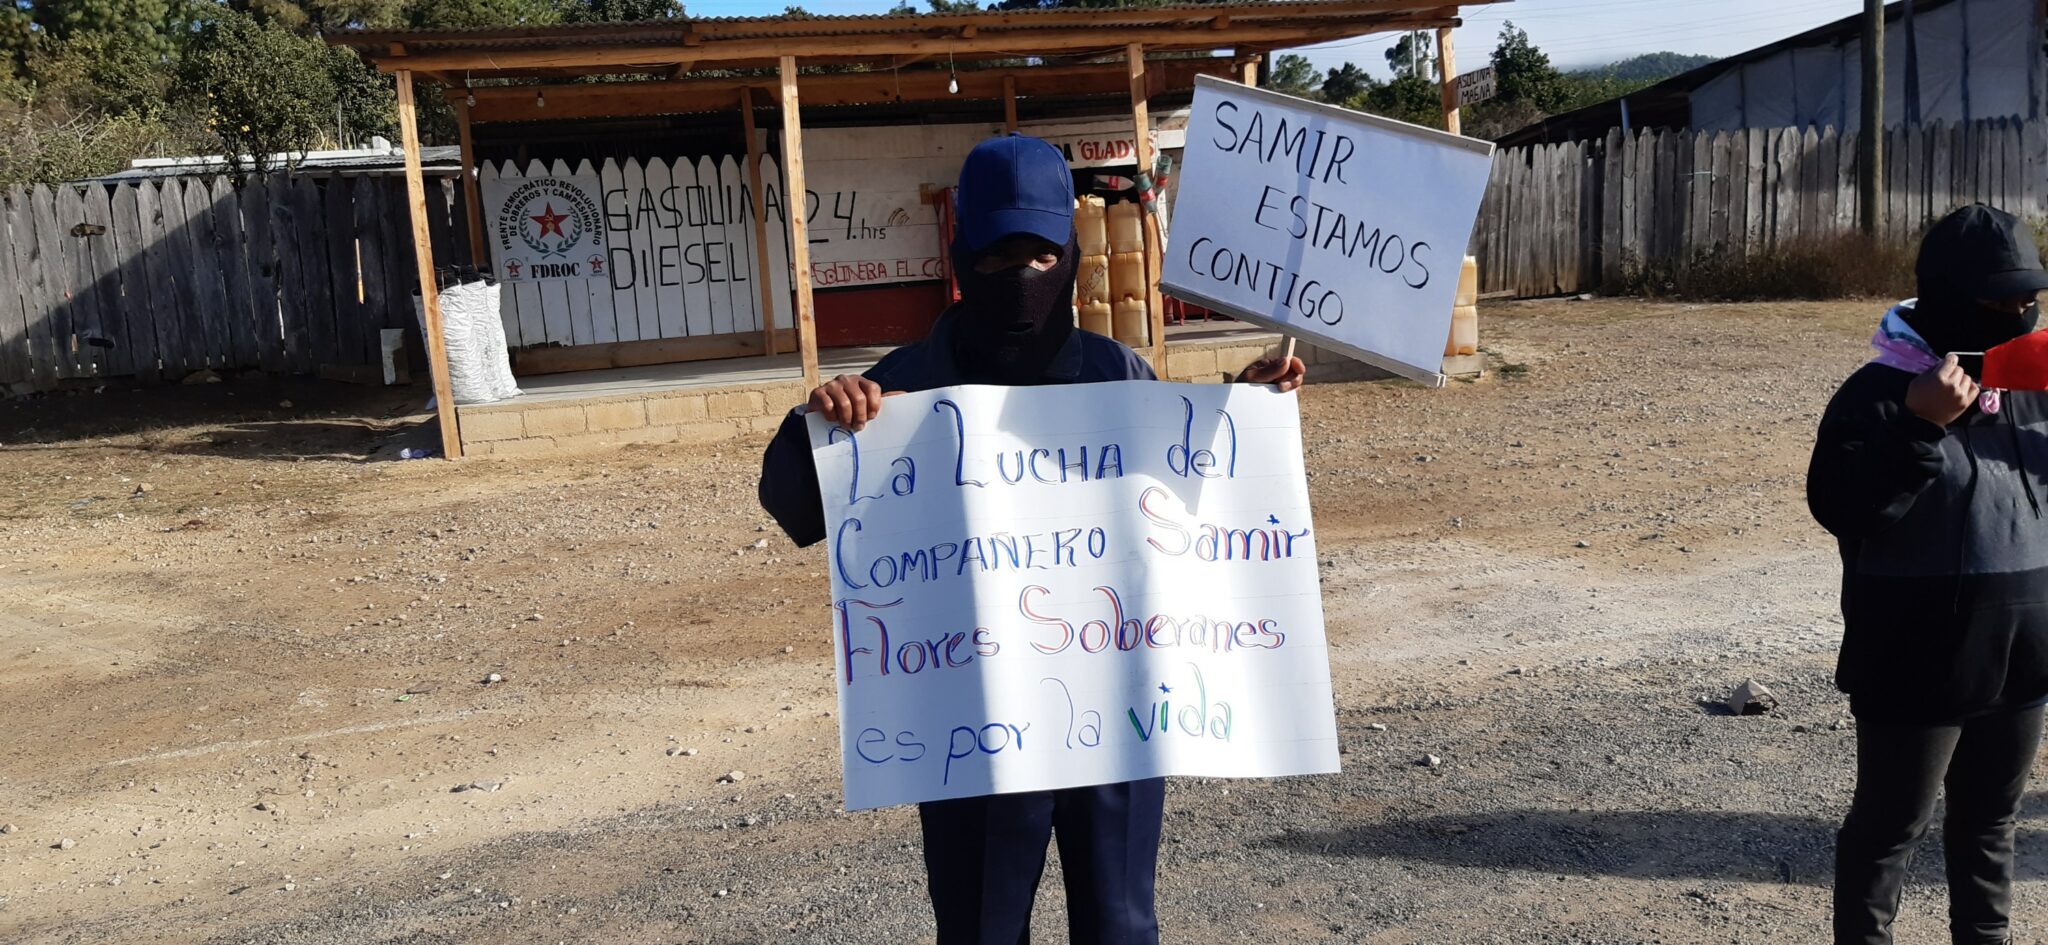 FRENTE DEMOCRÁTICO REVOLUCIONARIO
DE OBREROS Y CAMPESINOS
FDROC
GASOLINA
DIESEL
24 hrs
"GLADYS
DIESEL
GASOLINA
MAGNA
SAMIR
ESTAMOS
CONTIGO
La LUCHA del
COMPAÑERO Samir
Flores Soberanes
es por la vida